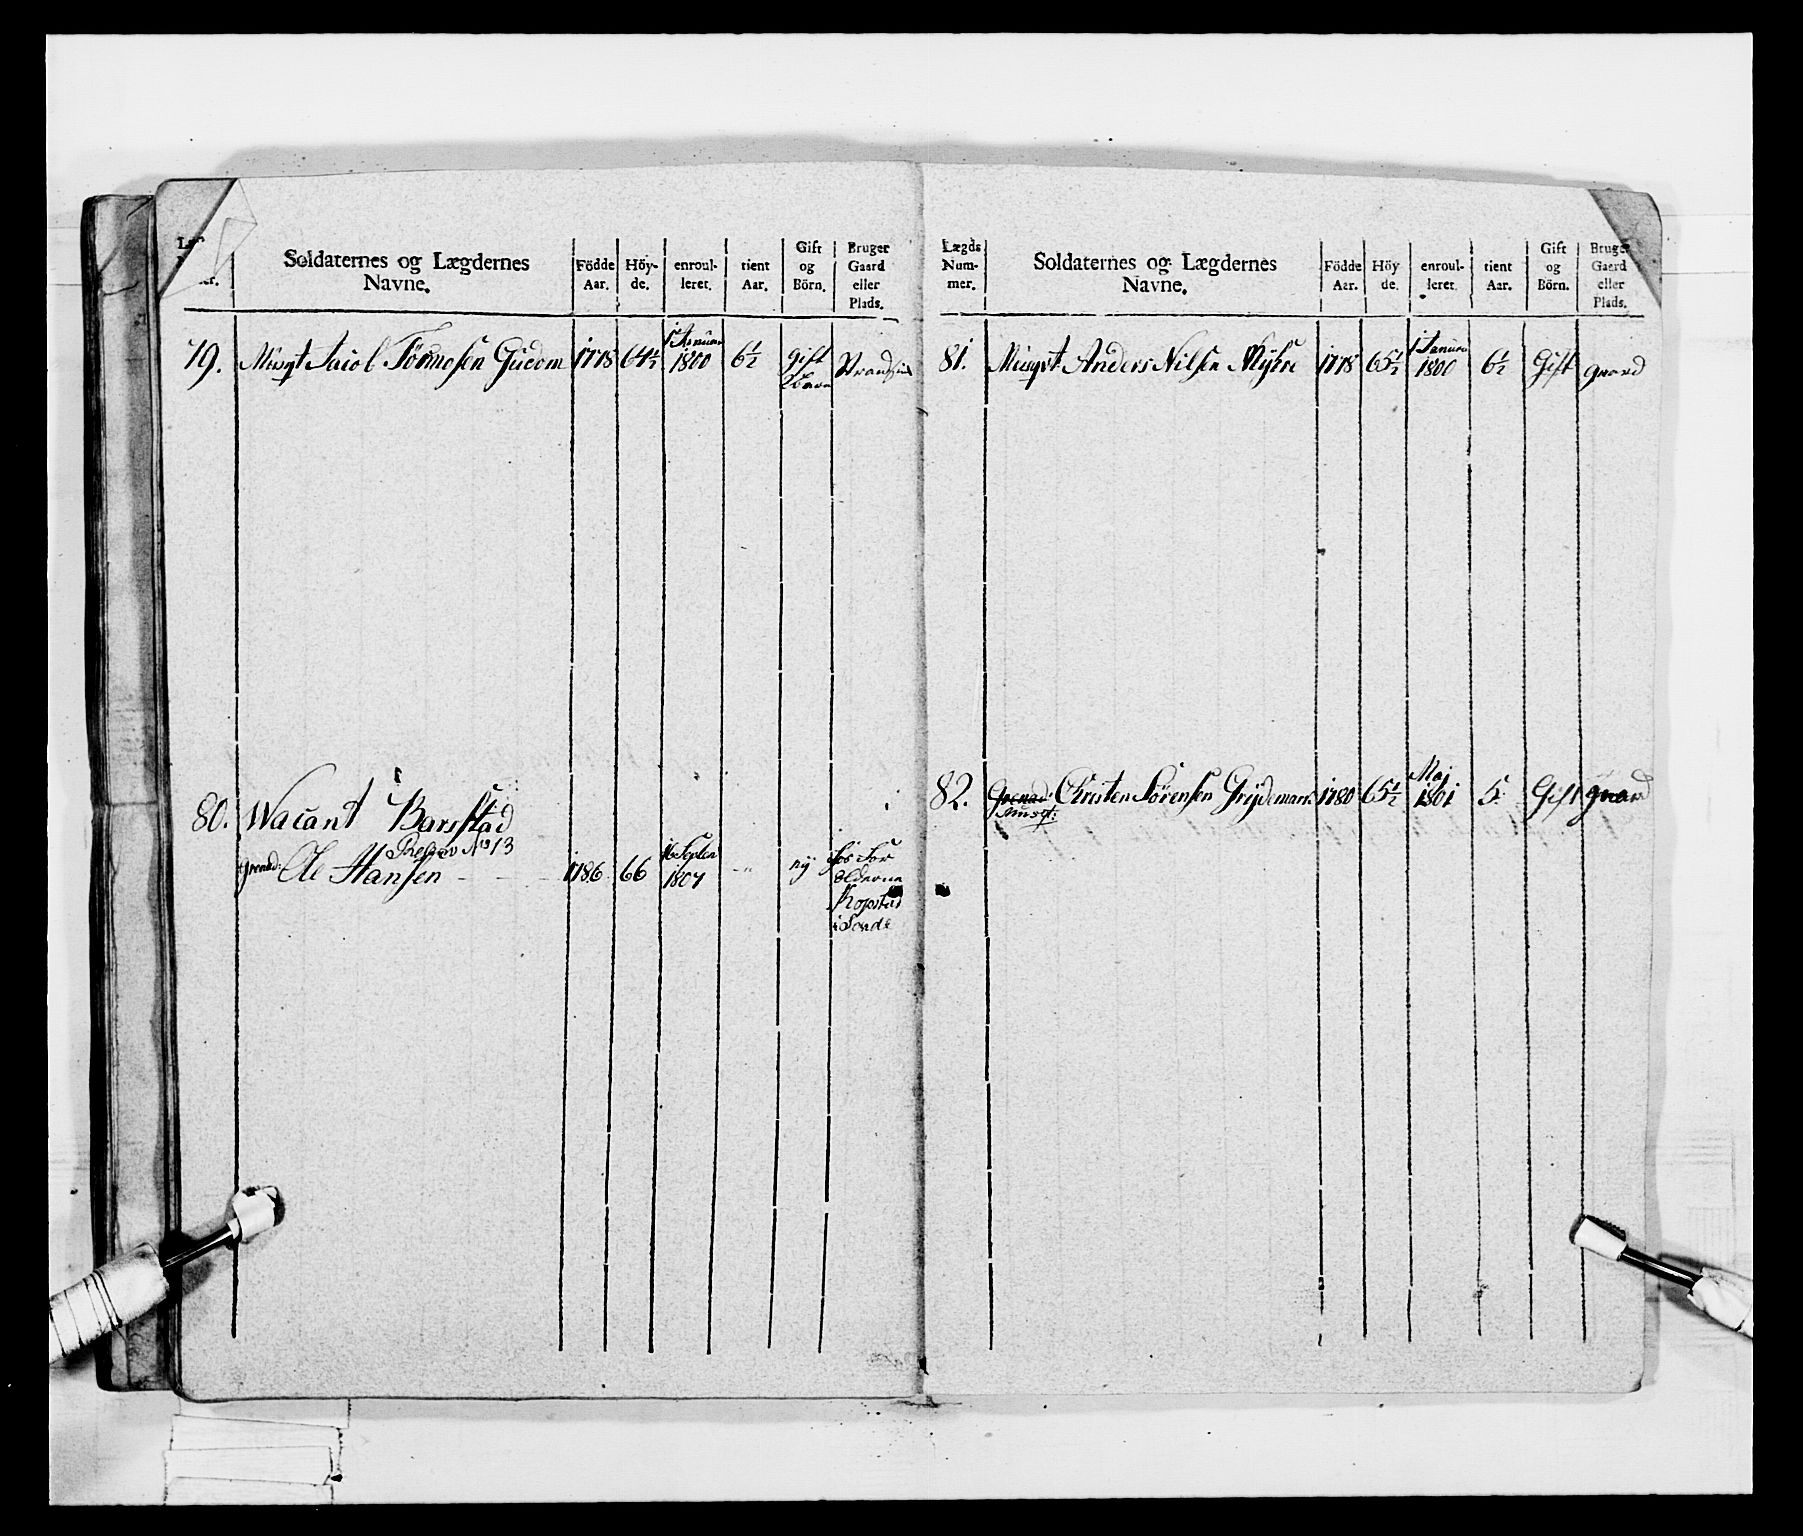 Soldaternes og Lægdernes
Navne.
Födde
Aar.
Höy-
de.
enroul-
leret.
tient
Aar.
Gift
og
Börn.
Bruger
Gaard
eller
Plads.
79. Musqt Jacob Tormosen Gudom 1778 64½ 1 Januar 1800 6½ gift 2 barn
80. Wacant Barsstad
No 13
Grenad: Ole Hansen 1786 66 16 Septen 1807 " ny hos For
ælderne
i
Lægds
Num-
mer.
Soldaternes og Lægdernes
Navne.
Födde
Aar.
Höy
de.
enroul-
leret.
tient
Aar.
Gift
og
Börn.
Bruger
Gaard
eller
Plads.
81. Musqt. Anders Nilsen Myhre 1778 65½ 1 Januar 1800 6½ Gift gaard
82. Grenad: Christen Sörensen 1780 65½ Maj 1801 5. Gift gaard
Musqt: